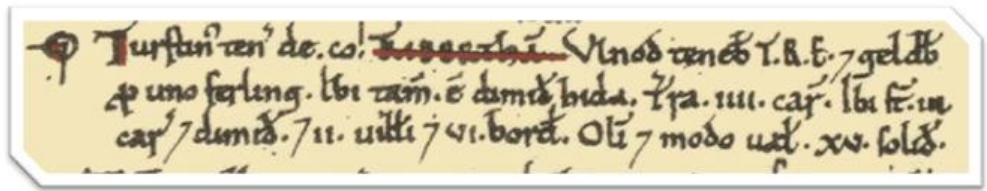 Turstin' ten' de. co. Vlnod teneb̃ T.R.E. ⁊ geldb̃
ꝑ uno ferling. Ibi tam̃. ẽ dimid̃ hida. T̃ra. iiii. car̃. Ibi st̃.
car' ⁊ dimid̃. ⁊ ii. uilłi ⁊ vi. bord̃. Oli ⁊ modo uał. xv. solid̃.